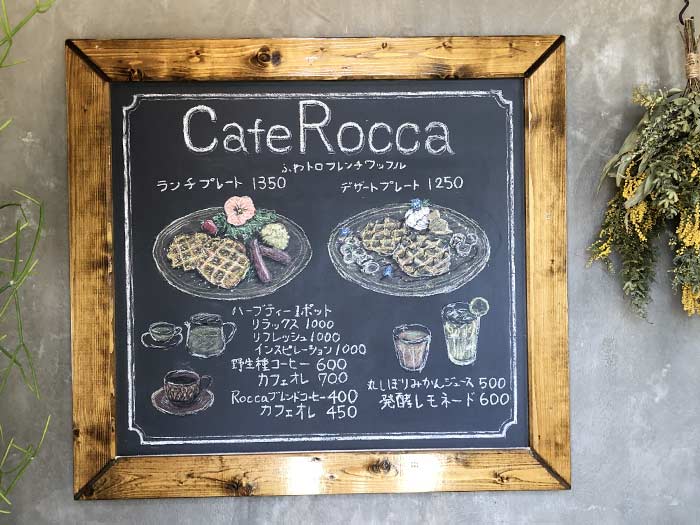 CafeRocca
ふわトロフレンチワッフル
ランチプレート 1350
デザートプレート 1250
ハーブティー 1ポット
リラックス 1000
リフレッシュ 1000
インスピレーション 1000
野生種コーヒー 600
カフェオレ 700
Roccaブレンドコーヒー 400
カフェオレ 450
丸しぼりみかんジュース 500
発酵レモネード 600